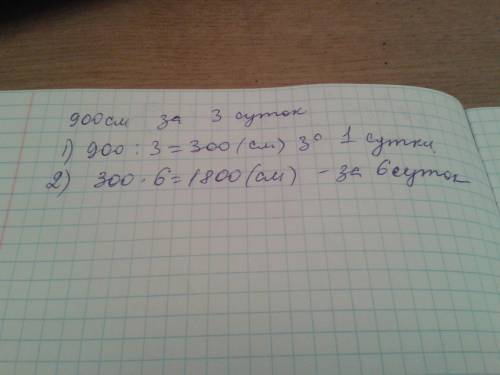 900см за 3 суток
1) 900 : 3 = 300 (см) за 1 сутки
2) 300 · 6 = 1800 (см) - за 6 суток